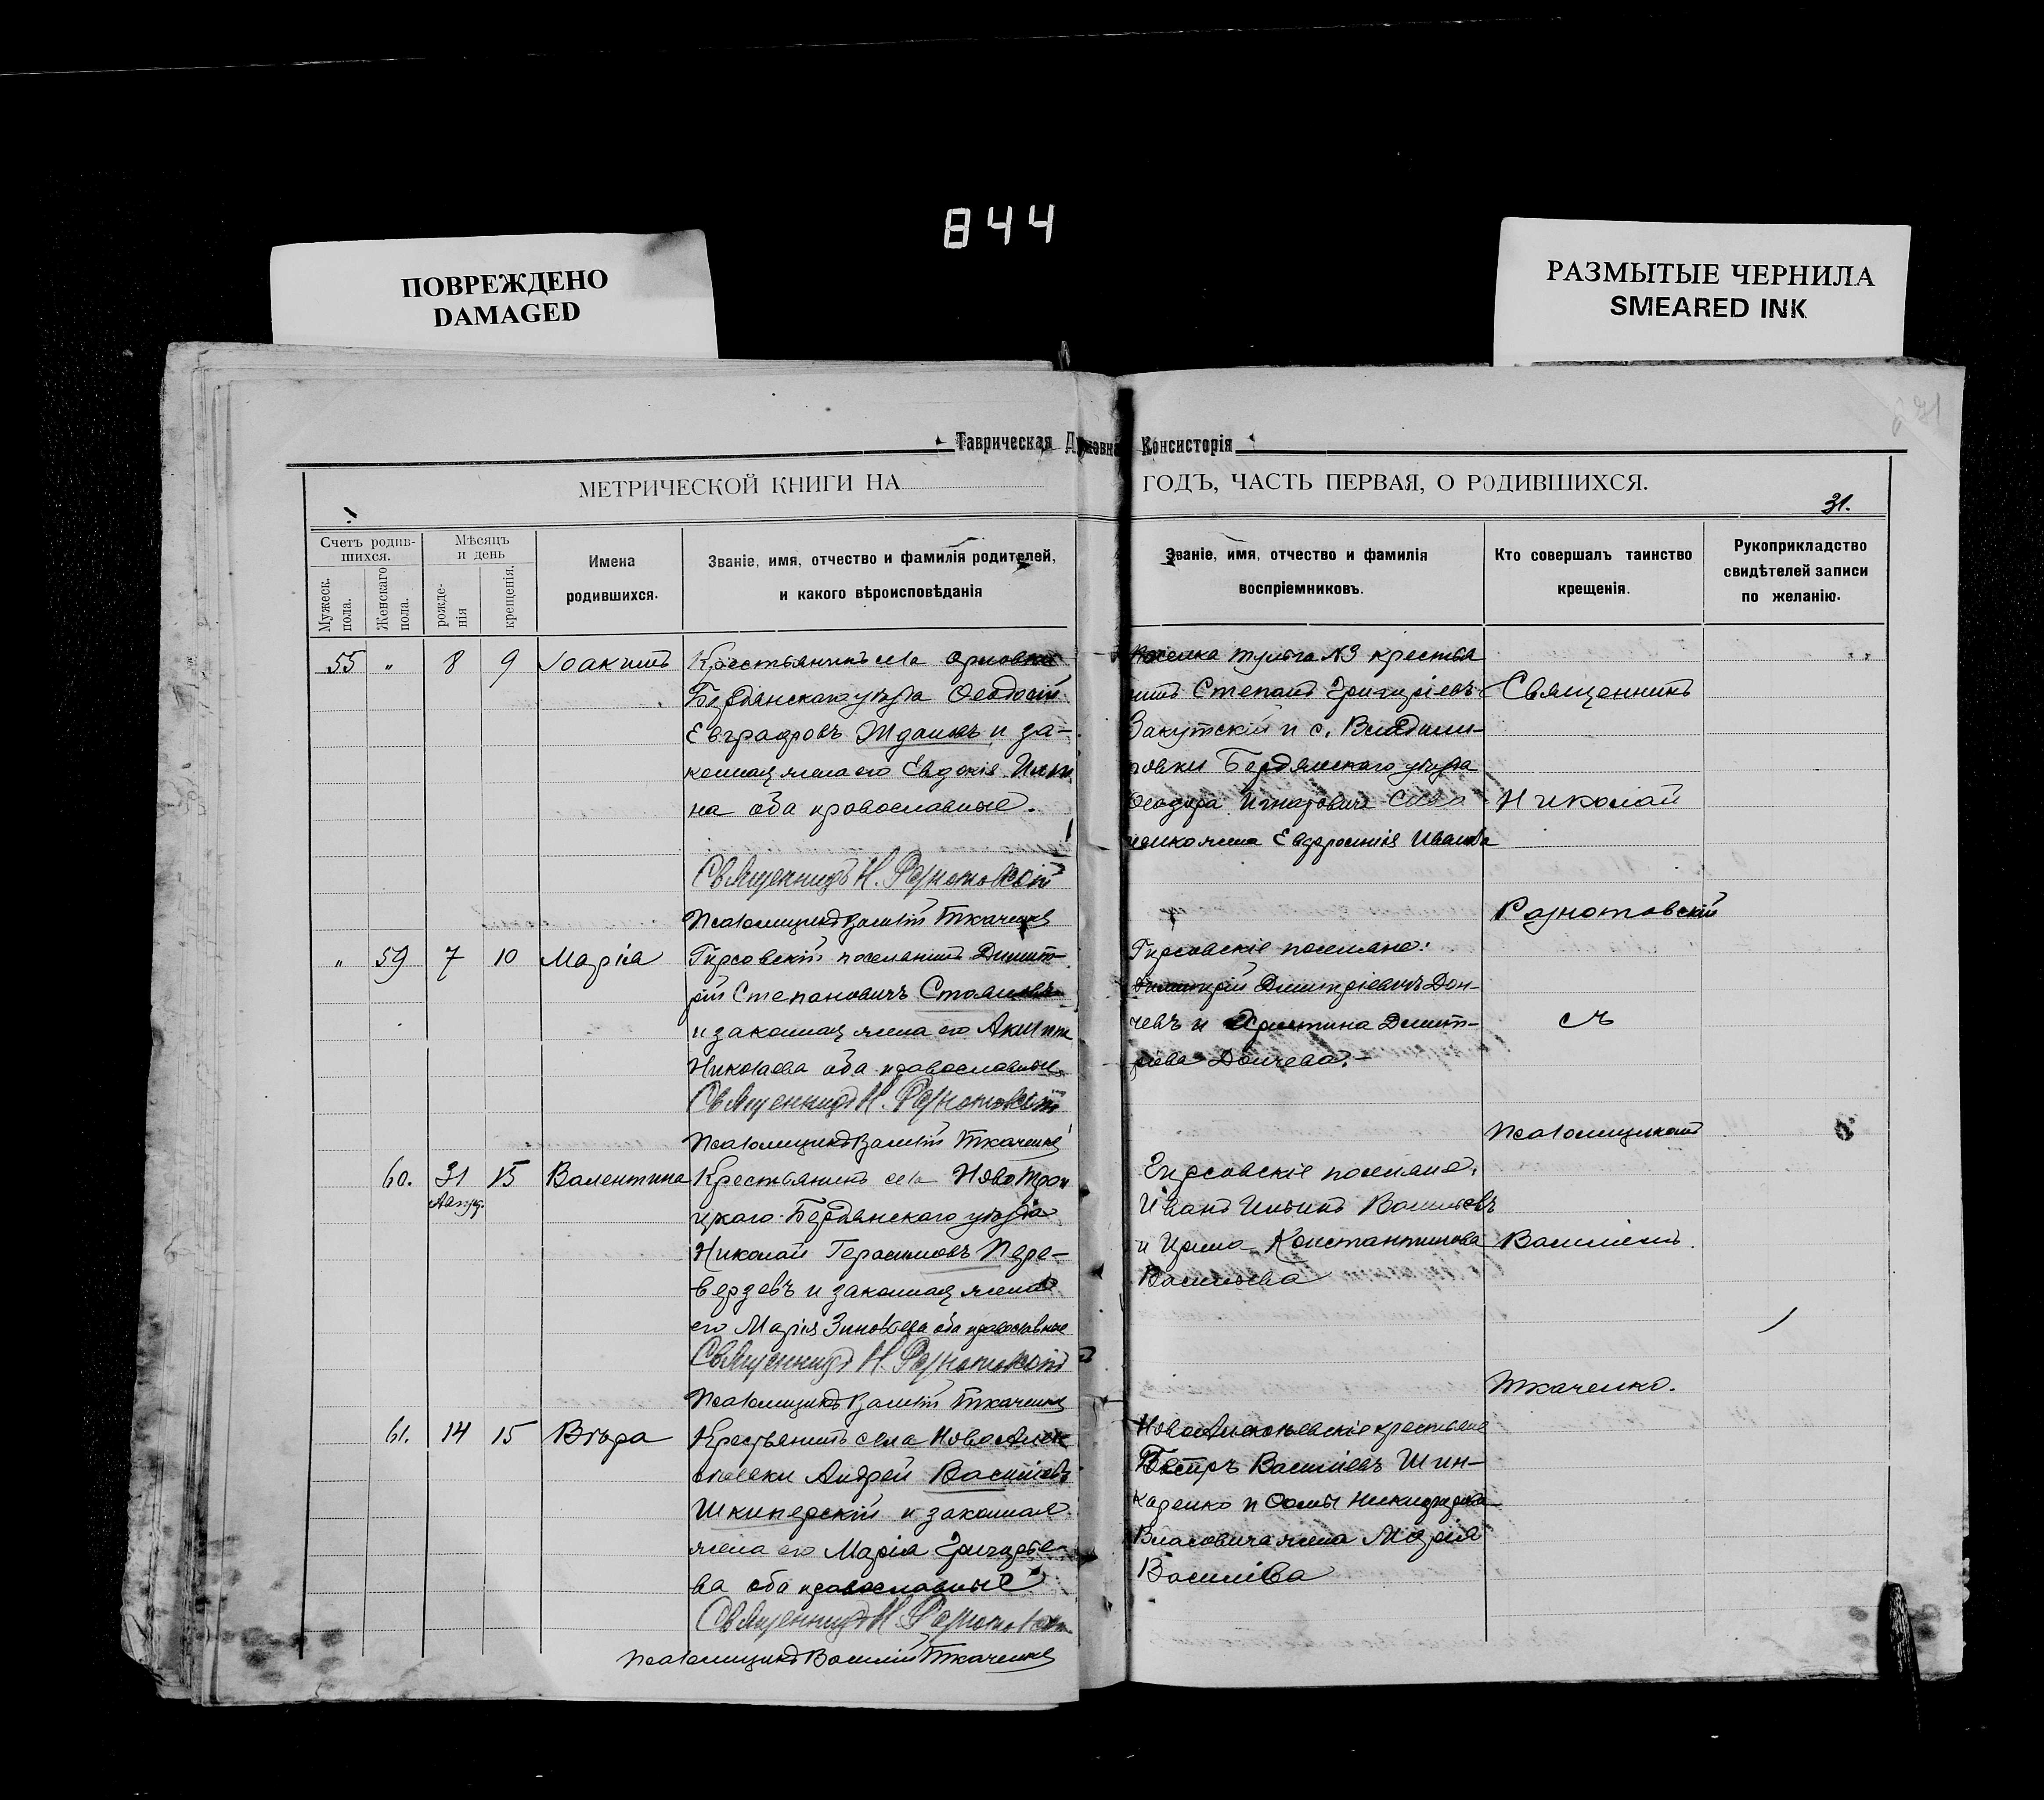 844
ПОВРЕЖДЕНО
DAMAGED
РАЗМЫТЫЕ ЧЕРНИЛА
SMEARED INK
Таврическая Духовная Консисторія
МЕТРИЧЕСКОЙ КНИГИ НА ГОДЪ, ЧАСТЬ ПЕРВАЯ, О РОДИВШИХСЯ.
31.
Счетъ родив-
шихся.
Мужеск.
пола.
Женскаго
пола.
Мѣсяцъ
и день
рожде-
нія
крещенія.
Имена
родившихся.
Званіе, имя, отчество и фамилія родителей,
и какого вѣроисповѣданія
Званіе, имя, отчество и фамилія
воспріемниковъ.
Кто совершалъ таинство
крещенія.
Рукоприкладство
свидѣтелей записи
по желанію.
55 " 8 9 Іоакимъ
Крестьянинъ села Орловки
Бердянскаго уѣзда Ѳеодосій
Евграфовъ Ждановъ и за-
конная жена его Евдокія Ильи
на оба православные.
Священникъ Н. Разнотовскій
Псаломщикъ Василій Ткаченко
поселка № 3 крестья
нинъ Степанъ Григоріевъ
Закутскій и с. Владими-
ровки Бердянскаго уѣзда
Ѳеодора Игнатовича
жена Евфросинія Иванова
Священникъ
Николай
Разнотовскій
" 59 7 10 Марія
Гирсовскій поселянинъ Димит-
рій Степановичъ Стояновъ
и законная жена его
Николаева оба православные
Священникъ Н. Разнотовскій
Псаломщикъ Василій Ткаченко
Гирсовскіе поселяне:
Димитрій Димитріевичъ Дон-
чевъ и Христина Димит-
ріева Дончева.
съ
Псаломщикомъ
60. 31 15 Валентина
Январ.
Крестьянинъ села Ново Трои
цкаго Бердянскаго уѣзда
Николай Герасимовъ Пере-
верзевъ и законная жена
его Марія Зиновіева оба православные
Священникъ Н. Разнотовскій
Псаломщикъ Василій Ткаченко
Гирсовскіе поселяне:
Иванъ Ильинъ Васильевъ
и Константинова
Васильева
Василіемъ
Ткаченко.
61. 14 15 Вѣра
Крестьянинъ села Ново Алек
сѣевки Андрей Васильевъ
Шкиперскій и законная
жена его Марія Григорье-
ва оба православные
Священникъ Н. Разнотовскій
Псаломщикъ Василій Ткаченко
Ново Алексѣевскіе крестьяне
Петръ Васильевъ Шин-
каренко и Ѳомы
Власовича жена Марія
Василіева